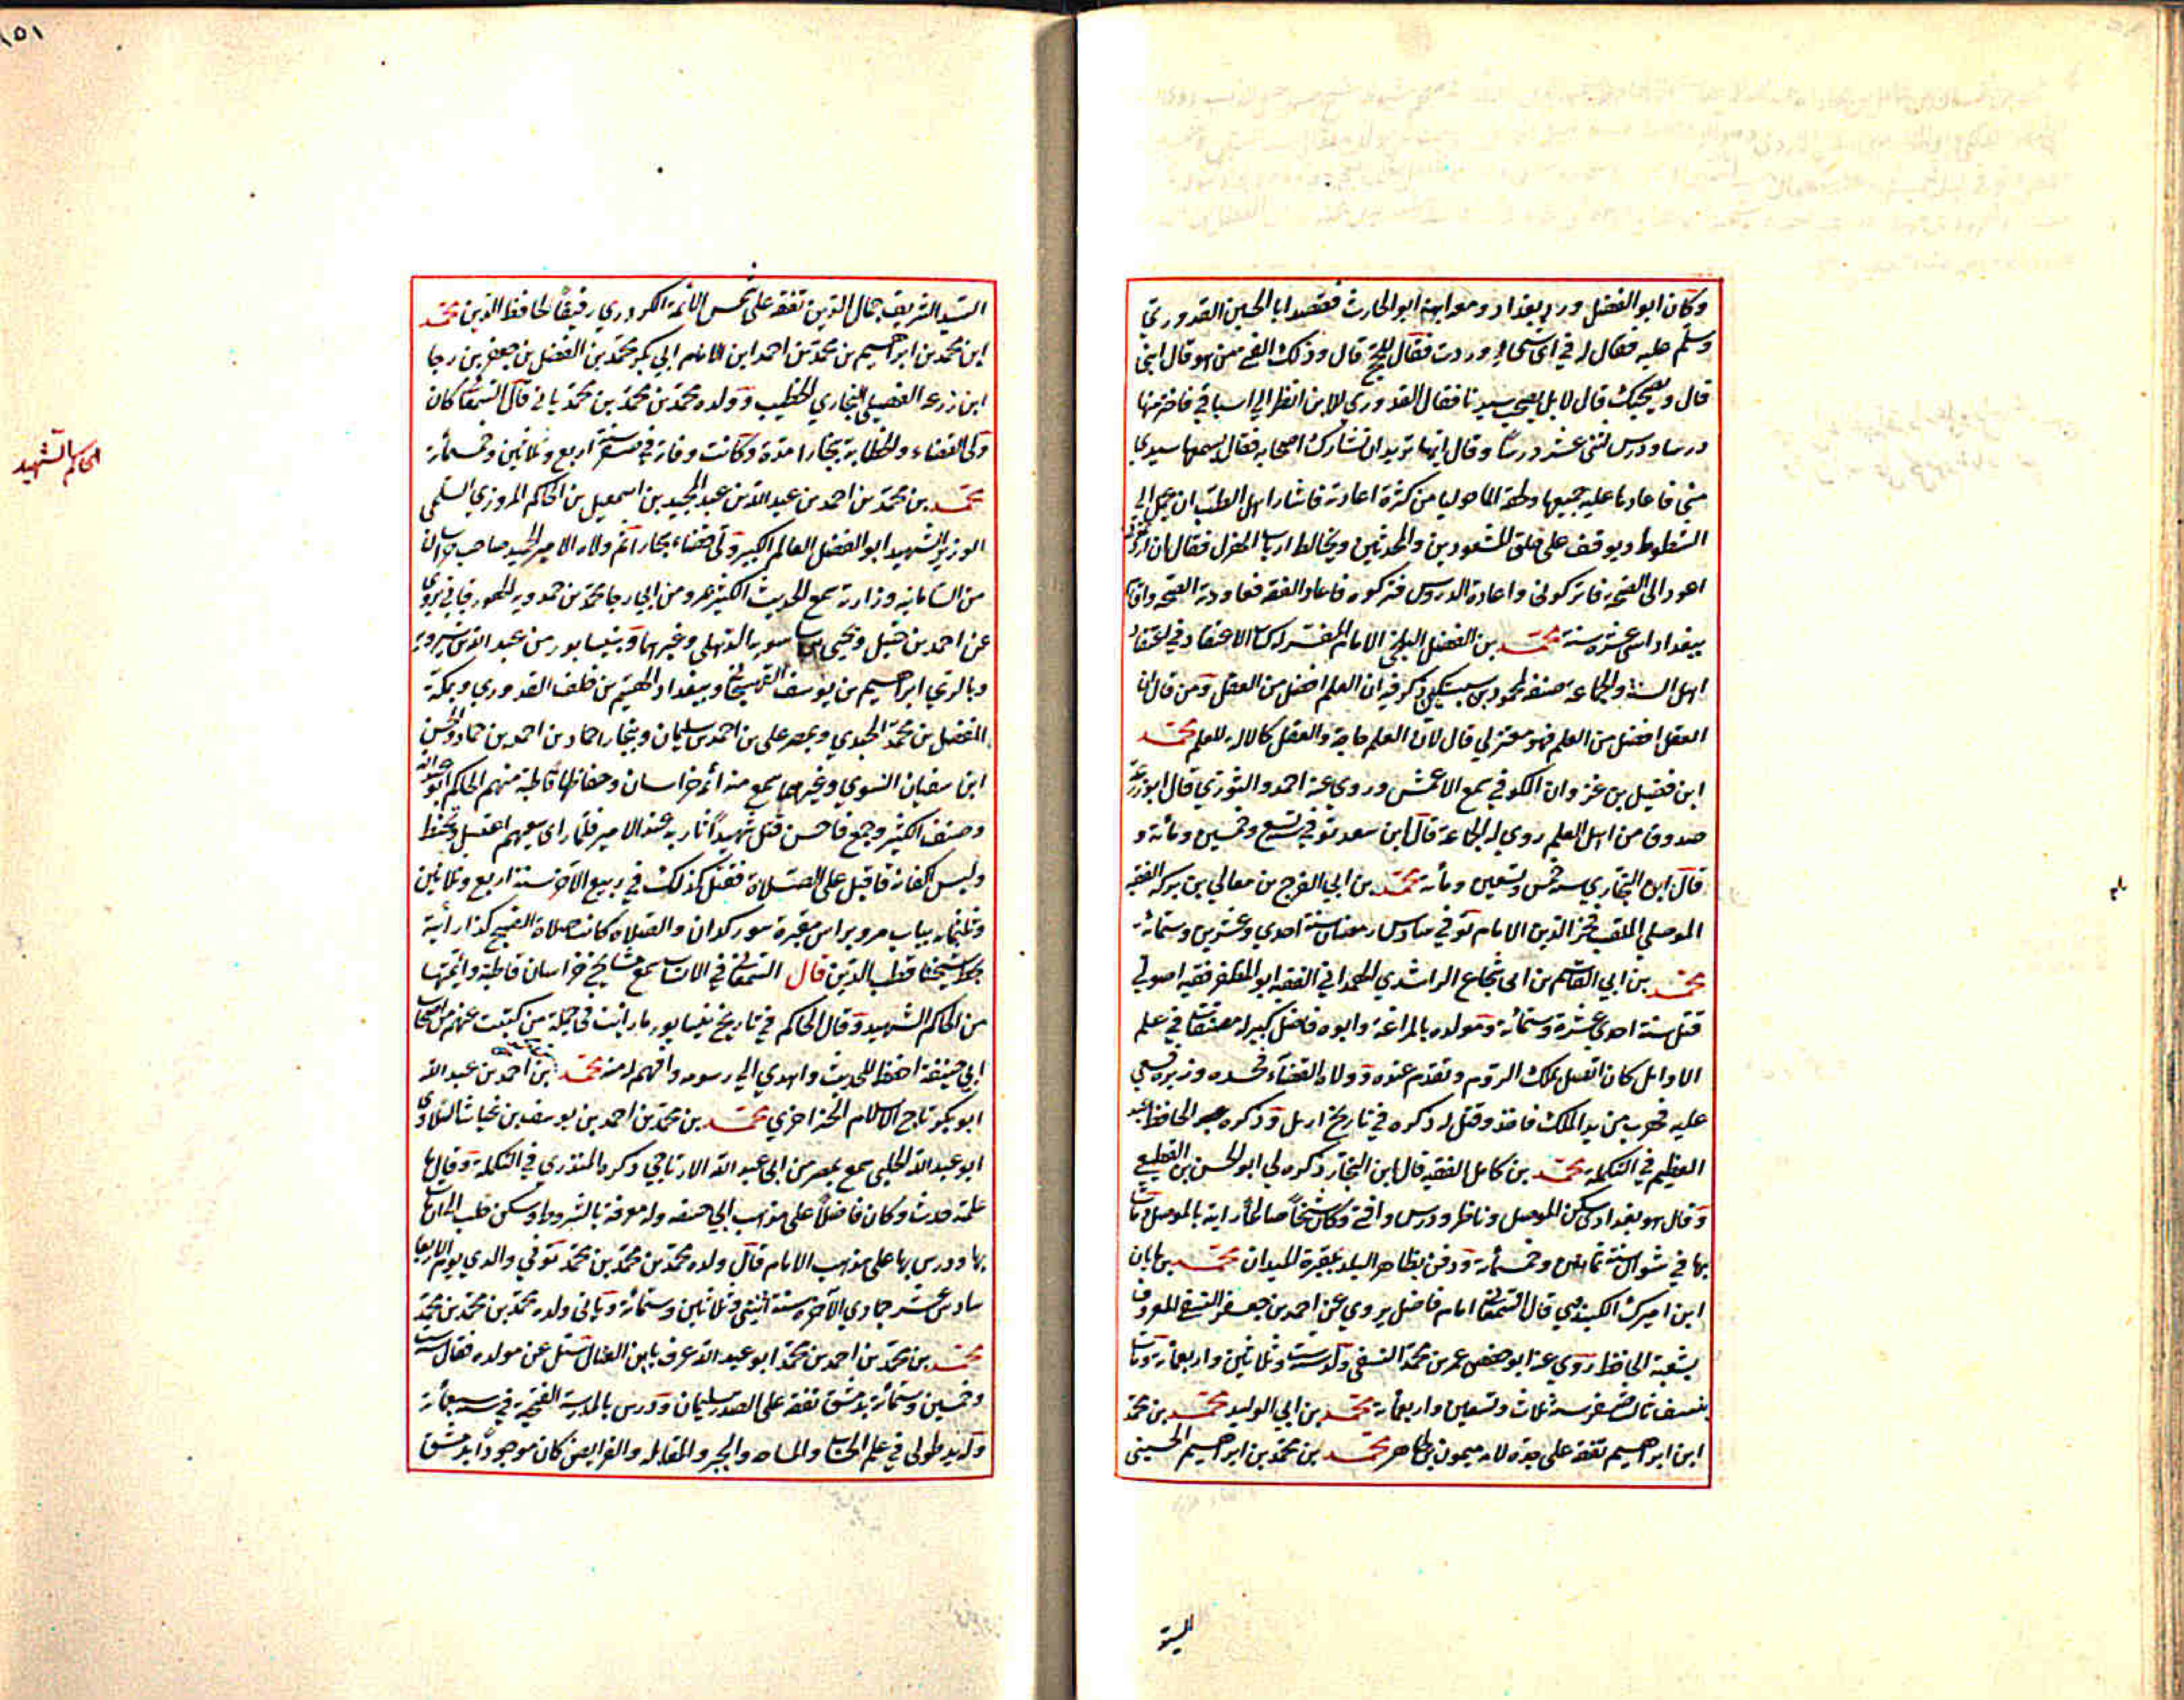 وكان ابو الفضل ورد بغداد ومعه ابنه ابو الحارث فقصد ابا الحسين القدوري
وسلم عليه فقال له في اي شيء وردت فقال للحج قال وذلك الفتى من هو قال ابني
قال ويصحبك قال لا بل يصحب سيدنا فقال القدوري للابن انظر الى اسباقي فاختر منها
درسا ودرس اثنى عشر درسا وقال ايها تريد ان تشارك اصحابه فقال يسمعها سيدي
مني فاعادها عليه جميعها ولحقه الماخوليا من كثرة اعادته فاشار اهل الطب ان يحمل الى
الشطوط ويوقف على حلق المشعوذين والمحدثين ويخالط ارباب الهزل فقال ان اردتم
اعود الى الصحة فاتركوني واعادة الدروس فتركوه فاعاد الفقه فعاودته الصحة
ببغداد اثنى عشرة سنة محمد بن الفضل البلخي الامام المفسر له كتاب الاعتقاد في اعتقاد
اهل السنة والجماعة صنفه لمحمود بن سبكتكين ذكر فيه ان العلم افضل من العقل ومن قال ان
العقل افضل من العلم فهو معتزلي قال لان العلم حاجة والعقل كالالة للعلم محمد
ابن فضيل بن غزوان الكوفي سمع الاعمش وروى عنه احمد والثوري قال ابو زرعة
صدوق من اهل العلم روى له الجماعة قال ابن سعد توفي سنة تسع وخمسين ومائة و
قال البخاري سنة خمس وتسعين ومائة محمد بن ابي الفرج بن معالي بن بركة الفقيه
الموصلي الملقب فخر الدين الامام توفي سادس رمضان سنة احدى وعشرين وستمائة
محمد بن ابي القاسم بن ابي شجاع الراشدي الهمداني الفقيه ابو المظفر فقيه اصولي
قتل سنة احدى عشرة وستمائة ومولده بالمراغة وابوه فاضل كبير له مصنفات في علم
الاوائل كان اتصل بملك الروم وتقدم عنده وولاه القضاء فحسده وزيره فسعى
عليه فهرب من يد الملك فاخذ وقتل له ذكره في تاريخ اربل وذكره الحافظ عبد
العظيم في التكملة محمد بن كامل الفقيه قال ابن النجار ذكره لي ابو الحسن بن القطيعي
وقال هو بغدادي سكن الموصل وناظر ودرس وافتى وكان شيخا صالحا رايته بالموصل ومات
بها في شوال سنة ثمانين وخمسمائة ودفن بظاهر البلد بمقبرة الميدان محمد بن ماهان
ابن اميرك الكبندوي قال السمعاني امام فاضل يروي عن احمد بن جعفر النسفي المعروف
بشعبة الحافظ روى عنه ابو حفص عمر بن محمد النسفي ولد سنة ست وثلاثين واربعمائة ومات
بنسف ثالث صفر سنة ثلاث وتسعين واربعمائة محمد بن ابي الوليد محمد بن محمد
ابن ابراهيم تفقه على جده لامه ميمون بن طاهر محمد بن محمد بن ابراهيم الحسيني
السيد
١٥١
السيد الشريف جمال الدين تفقه على شمس الائمة الكردري رفيقا لحافظ الدين محمد
ابن محمد بن ابراهيم بن محمد بن احمد ابن الامام ابي بكر محمد بن الفضل بن جعفر بن رجا
ابن زرعة الفضيلي البخاري الخطيب وولده محمد بن محمد بن محمد ياتي قال السمعاني كان
ولي القضاء والخطابة ببخارا مدة وكانت وفاته في صفر سنة اربع وثلاثين وخمسمائة
محمد بن محمد بن احمد بن عبد الله بن عبد المجيد بن اسمعيل بن الحاكم المروزي السلمي
الوزير الشهيد ابو الفضل العالم الكبير ولي قضاء بخارا ثم ولاه الامير الحميد صاحب خراسان
من السامانية وزارته سمع الحديث الكثير بمرو من ابي رجا محمد بن حمدويه الهورقاني يروي
عن احمد بن حنبل ويحيى بن الذهلي وغيرهما وبنيسابور من عبد الله بن شيرويه
وبالري ابراهيم بن يوسف الهسنجاني وببغداد الهيثم بن خلف الدوري وبمكة
المفضل بن محمد الجندي وبمصر علي بن احمد بن سليمان وببخارا حماد بن احمد بن حماد والحسن
ابن سفيان النسوي وغيرهما سمع منه ائمة خراسان وحفاظها قاطبة منهم الحاكم ابو عبد الله
وصنف الكثير وجمع فاحسن قتل شهيدا عند الامير فلما راى سعيهم اغتسل وتحنط
ولبس اكفانه فاقبل على الصلاة فقتل كذلك في ربيع الآخر سنة اربع وثلاثين
وثلثمائة بباب مرو براس مقبرة سوركدان والصلاة كانت صلاة الصبح كذا رايته
بخط شيخنا قطب الدين قال السمعاني في الانساب سمع مشايخ خراسان قاطبة وائمتها
من الحاكم الشهيد وقال الحاكم في تاريخ نيسابور ما رايت في جملة من كتبت عنهم من اصحاب
ابي حنيفة احفظ للحديث واهدى الى رسومه وافهم له منه محمد بن احمد بن عبد الله
ابو بكر تاج الاسلام الخزاخزي محمد بن محمد بن احمد بن يوسف بن
ابو عبد الله الحلبي سمع بمصر من ابي عبد الله الارتاحي ذكره المنذري في التكملة وقال ما
علمته حدث وكان فاضلا على مذهب ابي حنيفة وله معرفة بالشروط وسكن حلب الى ان مات
بها ودرس بها على مذهب الامام قال ولده محمد بن محمد بن محمد توفي والدي يوم الاربعا
سادس عشر جمادى الآخرة سنة اثنتي وثلاثين وستمائة وياتي ولده محمد بن محمد بن محمد
محمد بن محمد بن احمد بن محمد ابو عبد الله عرف بابن سئل عن مولده فقال سنة ست
وخمسين وستمائة بدمشق تفقه على الصدر سليمان ودرس بالمدرسة الفتحية في سنة سبعمائة
وله يد طولى في علم الحساب والمساحة والجبر والمقابلة والفرايض كان موجودا بدمشق
الحاكم الشهيد